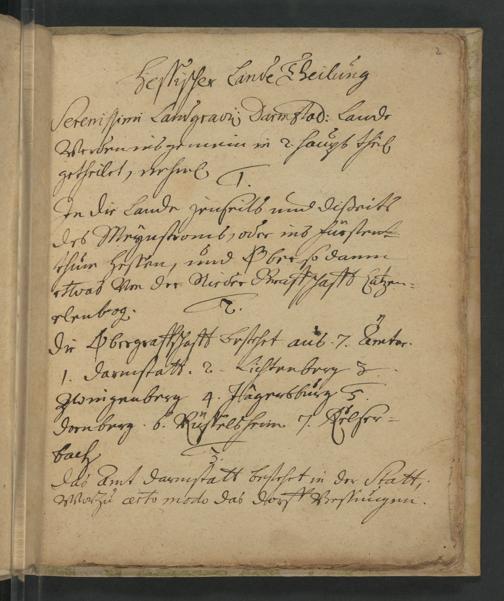 2
Hessischer Lande Theilung
Serenissimi Landgravij Darmstad: Lande
Werden ins gemein in 2. haupt theil
getheilet,
1.
In die Lande jenseits und disseits
des Meynstroms, oder ins Fürsten-
thum Hessen, und Ober so dann
etwas von der Nieder Graffschafft Catzen-
elenbog.
2.
Die Obergraffschafft bestehet aus 7. Ämter.
1. Darmstatt. 2. Lichtenberg 3
Zwingenberg 4. Jägersburg 5.
Dornberg. 6. Rüsselsheim 7. Kelster-
bach
3.
Das Amt Darmstatt bestehet in der Statt,
Worzu certo modo das dorff Bessungen.